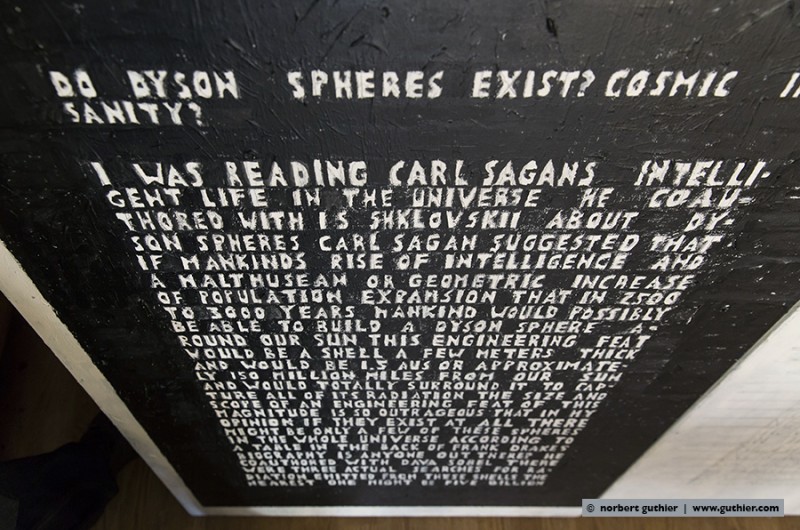 DO DYSON SPHERES EXIST? COSMIC IN
SANITY?
I WAS READING CARL SAGANS INTELLI-
GENT LIFE IN THE UNIVERSE HE COAU-
THORED WITH IS SHKLOVSKII ABOUT DY-
SON SPHERES CARL SAGAN SUGGESTED THAT
IF MANKINDS RISE OF INTELLIGENCE AND
A MALTHUSEAN OR GEOMETRIC INCREASE
OF POPULATION EXPANSION THAT IN 2500
TO 3000 YEARS MANKIND WOULD POSSIBLY
BE ABLE TO BUILD A DYSON SPHERE A-
ROUND OUR SUN THIS ENGINEERING FEAT
WOULD BE A SHELL A FEW METERS THICK
AND WOULD BE 1.5 AUS OR APPROXIMATE-
LY 150 MILLION MILES FROM OUR SUN
AND WOULD TOTALLY SURROUND IT TO CAP
TURE ALL OF ITS RADIATION THE SIZE AND
SCOVE OF AN ENGINEERING FEAT OF THIS
MAGNITUDE IS SO OUTRAGEOUS THAT IN MY
OPINION IF THEY EXIST AT ALL THERE
MIGHT BE ONLY A FEW OF THESE SPHERES
IN THE WHOLE UNIVERSE ACCORDING TO
A TABLE IN THE BACK OF FRANK DRAKES
BIOGRAPHY IS ANYONE OUT THERE
COAUTHORED WITH DAVA SOBEL THERE
WERE THREE ACTUAL SEARCHES FOR RA-
DIATION EMITTED FROM THESE SHELLS THE
NEAREST BEING EIGHT OF FIVE BILLION
© norbert guthier | www.guthier.com